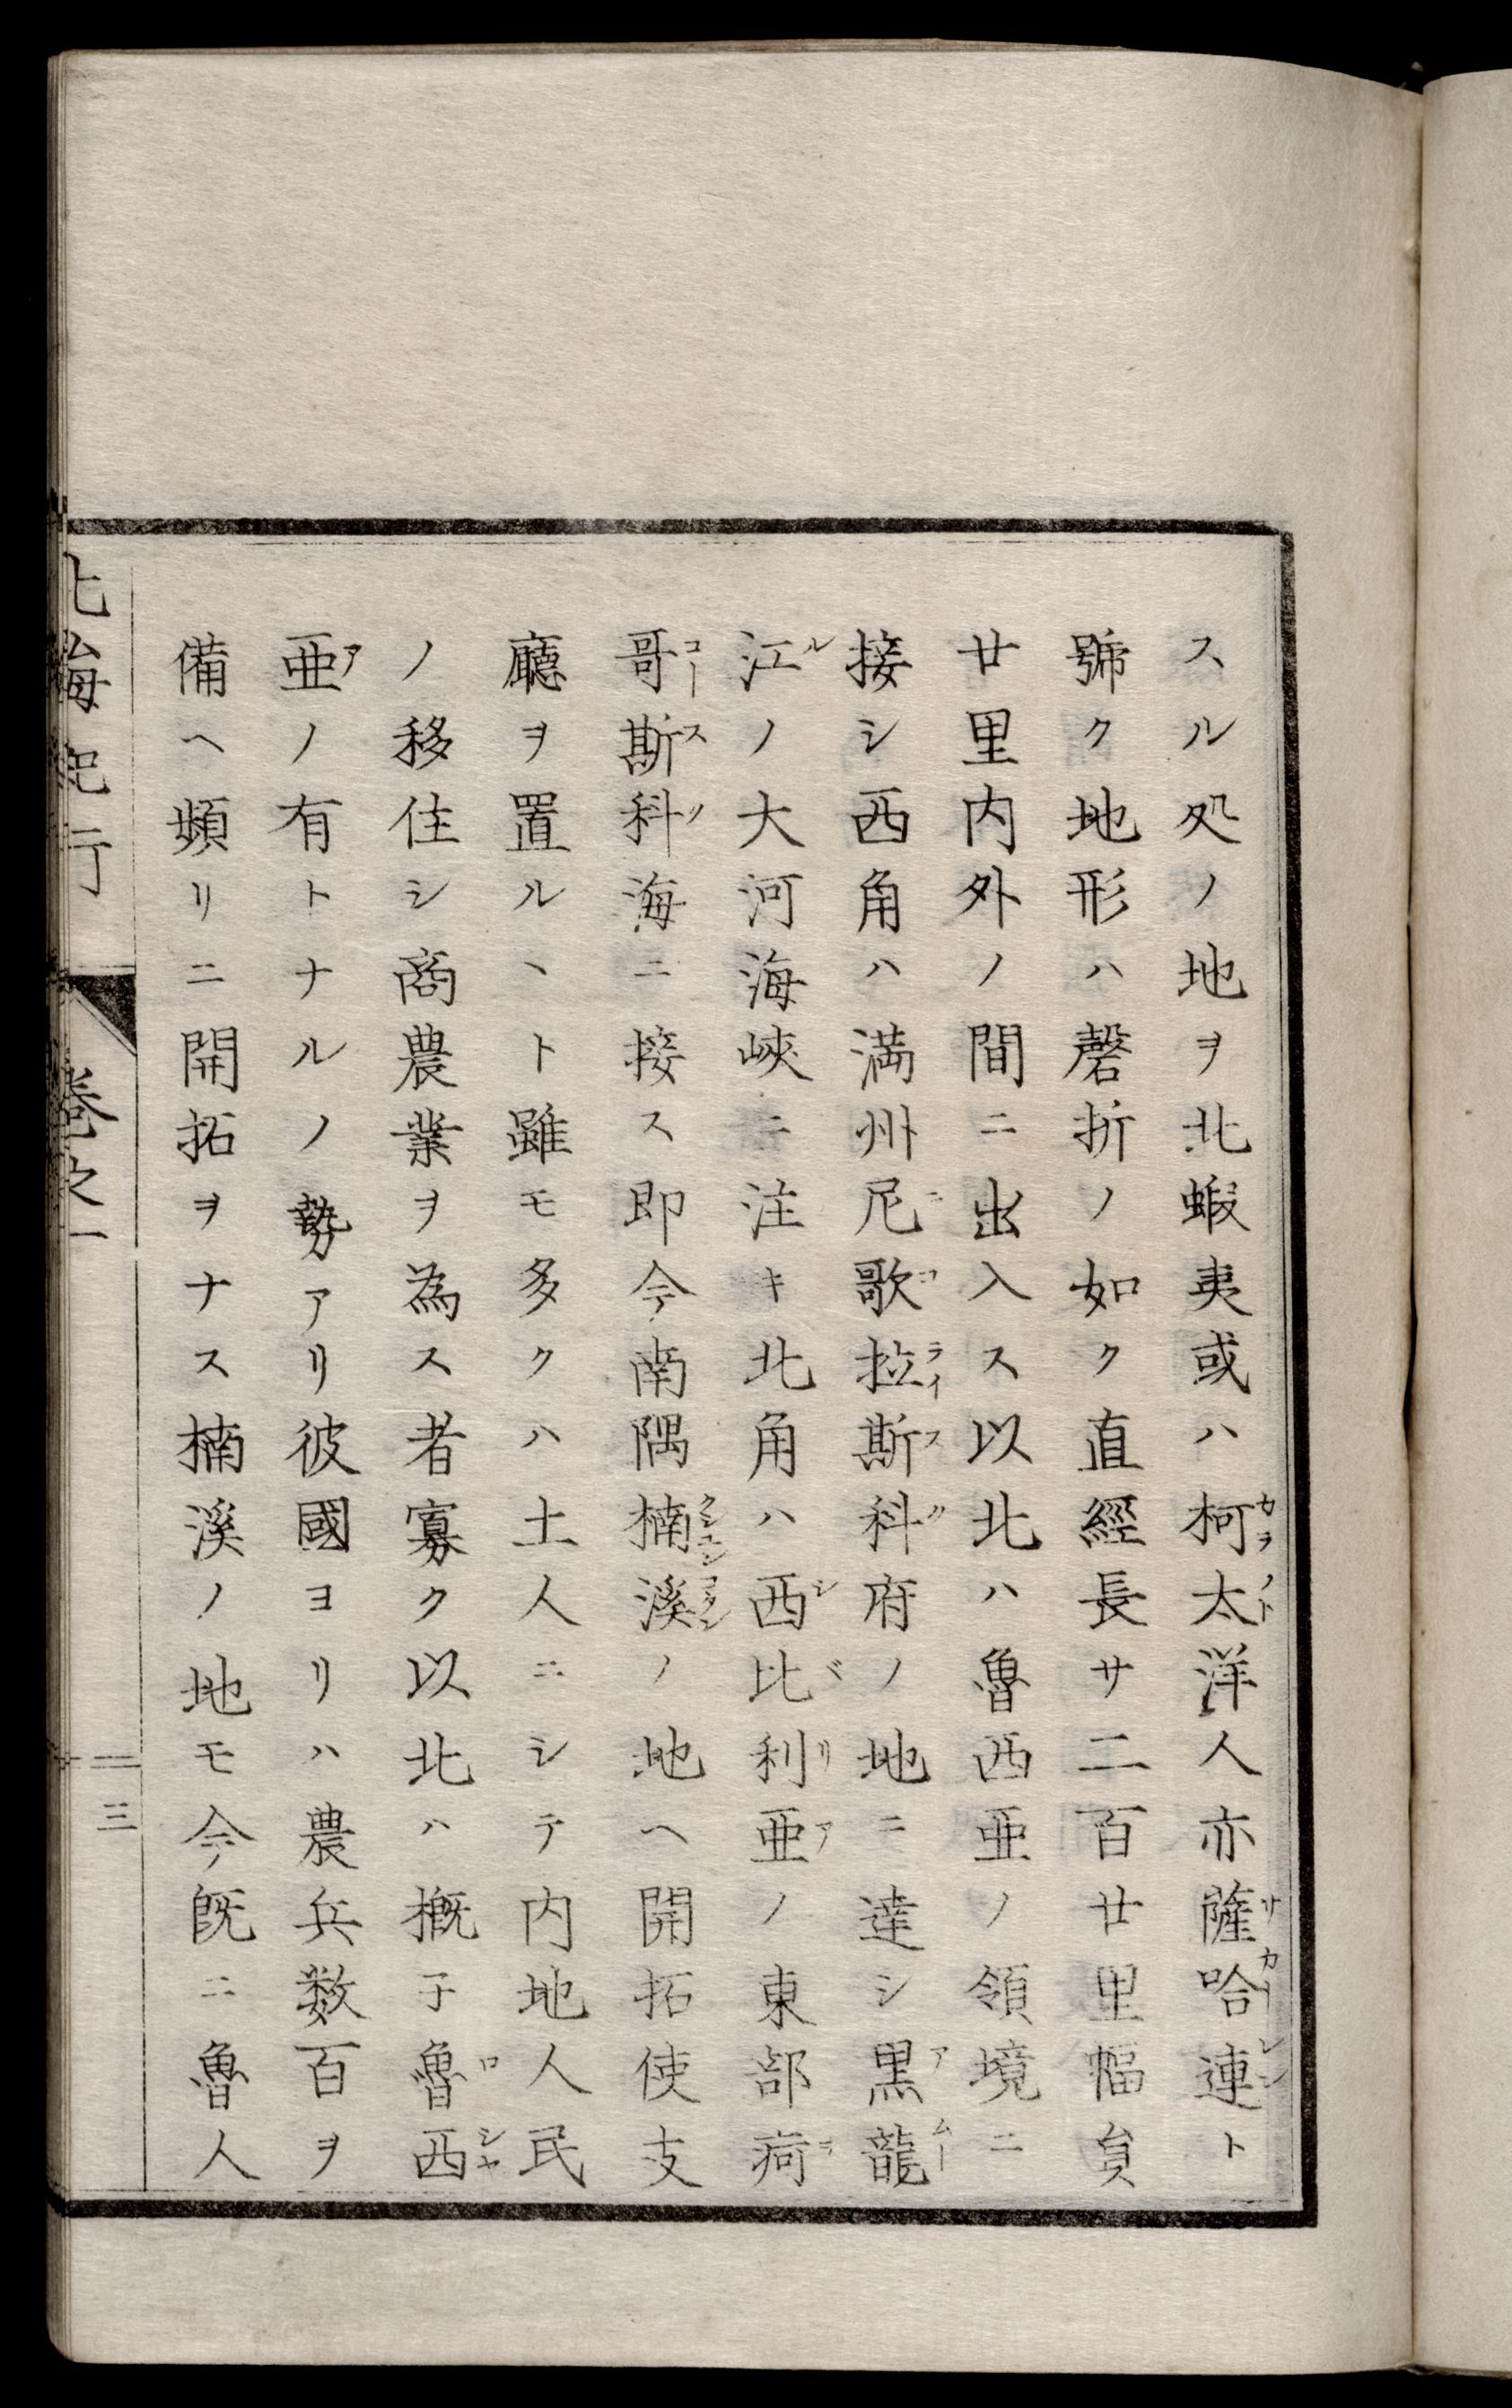 スル処ノ地ヲ北蝦夷或ハ柯太洋人亦薩哈連ト
號ク地形ハ磬折ノ如ク直經長サ二百廿里幅負
廿里内外ノ間ニ出入ス以北ハ魯西亜ノ領境ニ
接シ西角ハ満州尼歌拉斯科府ノ地ニ達シ黒龍
江ノ大河海峽ニ注キ北角ハ西比利亜ノ東部疴
哥斯科海ニ接ス即今南隅楠溪ノ地ヘ開拓使支
廳ヲ置ルヽト雖モ多クハ土人ニシテ内地人民
ノ移住シ商農業ヲ為ス者寡ク以北ハ概子魯西
亜ノ有トナルノ勢アリ彼國ヨリハ農兵数百ヲ
備ヘ頻リニ開拓ヲナス楠溪ノ地モ今既ニ魯人
北海紀行 巻之一 三